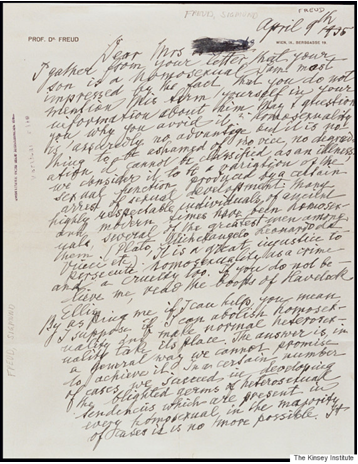 FREUD
FREUD, SIGMUND
April 9th 1935
PROF. Dr. FREUD
WIEN, IX., BERGGASSE 19.
Dear Mrs
I gather from your letter that your
son is a homosexual. I am most
impressed by the fact that you do not
mention this term yourself in your
information about him. May I question
you why you avoid it? Homosexuality
is assuredly no advantage but it is not
thing to be ashamed of, no vice, no degrad
ation, it cannot be classified as an illness
we consider it to be a variation of the
sexual function produced by a certain
arrest of sexual development. Many
highly respectable individuals of ancient
and modern times have been homosex
uals, several of the greatest men among
them. (Plato, Michelangelo, Leonardo da
Vinci, etc). It is a great injustice to
persecute homosexuality as a crime
and a cruelty too. If you do not be-
lieve me, read the books of Havelock
Ellis.
By asking me if I can help, you mean
I suppose, if I can abolish homosex
uality and make normal heterosex
uality take its place. The answer is, in
a general way we cannot promise
to achieve it. In a certain number
of cases we succeed in developing
the blighted germs of heterosexual
tendencies which are present in
every homosexual, in the majority
of cases it is no more possible. It
FREUD, SIGMUND
The Kinsey Institute